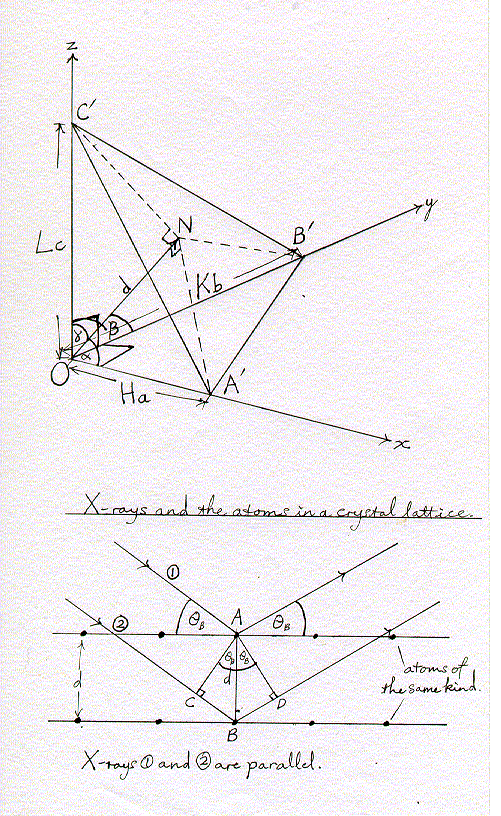 z
C′
y
N
B′
Lc
Kb
d
γ
β
α
O
A′
Ha
x
X-rays and the atoms in a crystal lattice.
①
②
A
θB
θB
θB
θB
d
d
C
D
B
atoms of
the same kind.
X-rays ① and ② are parallel.